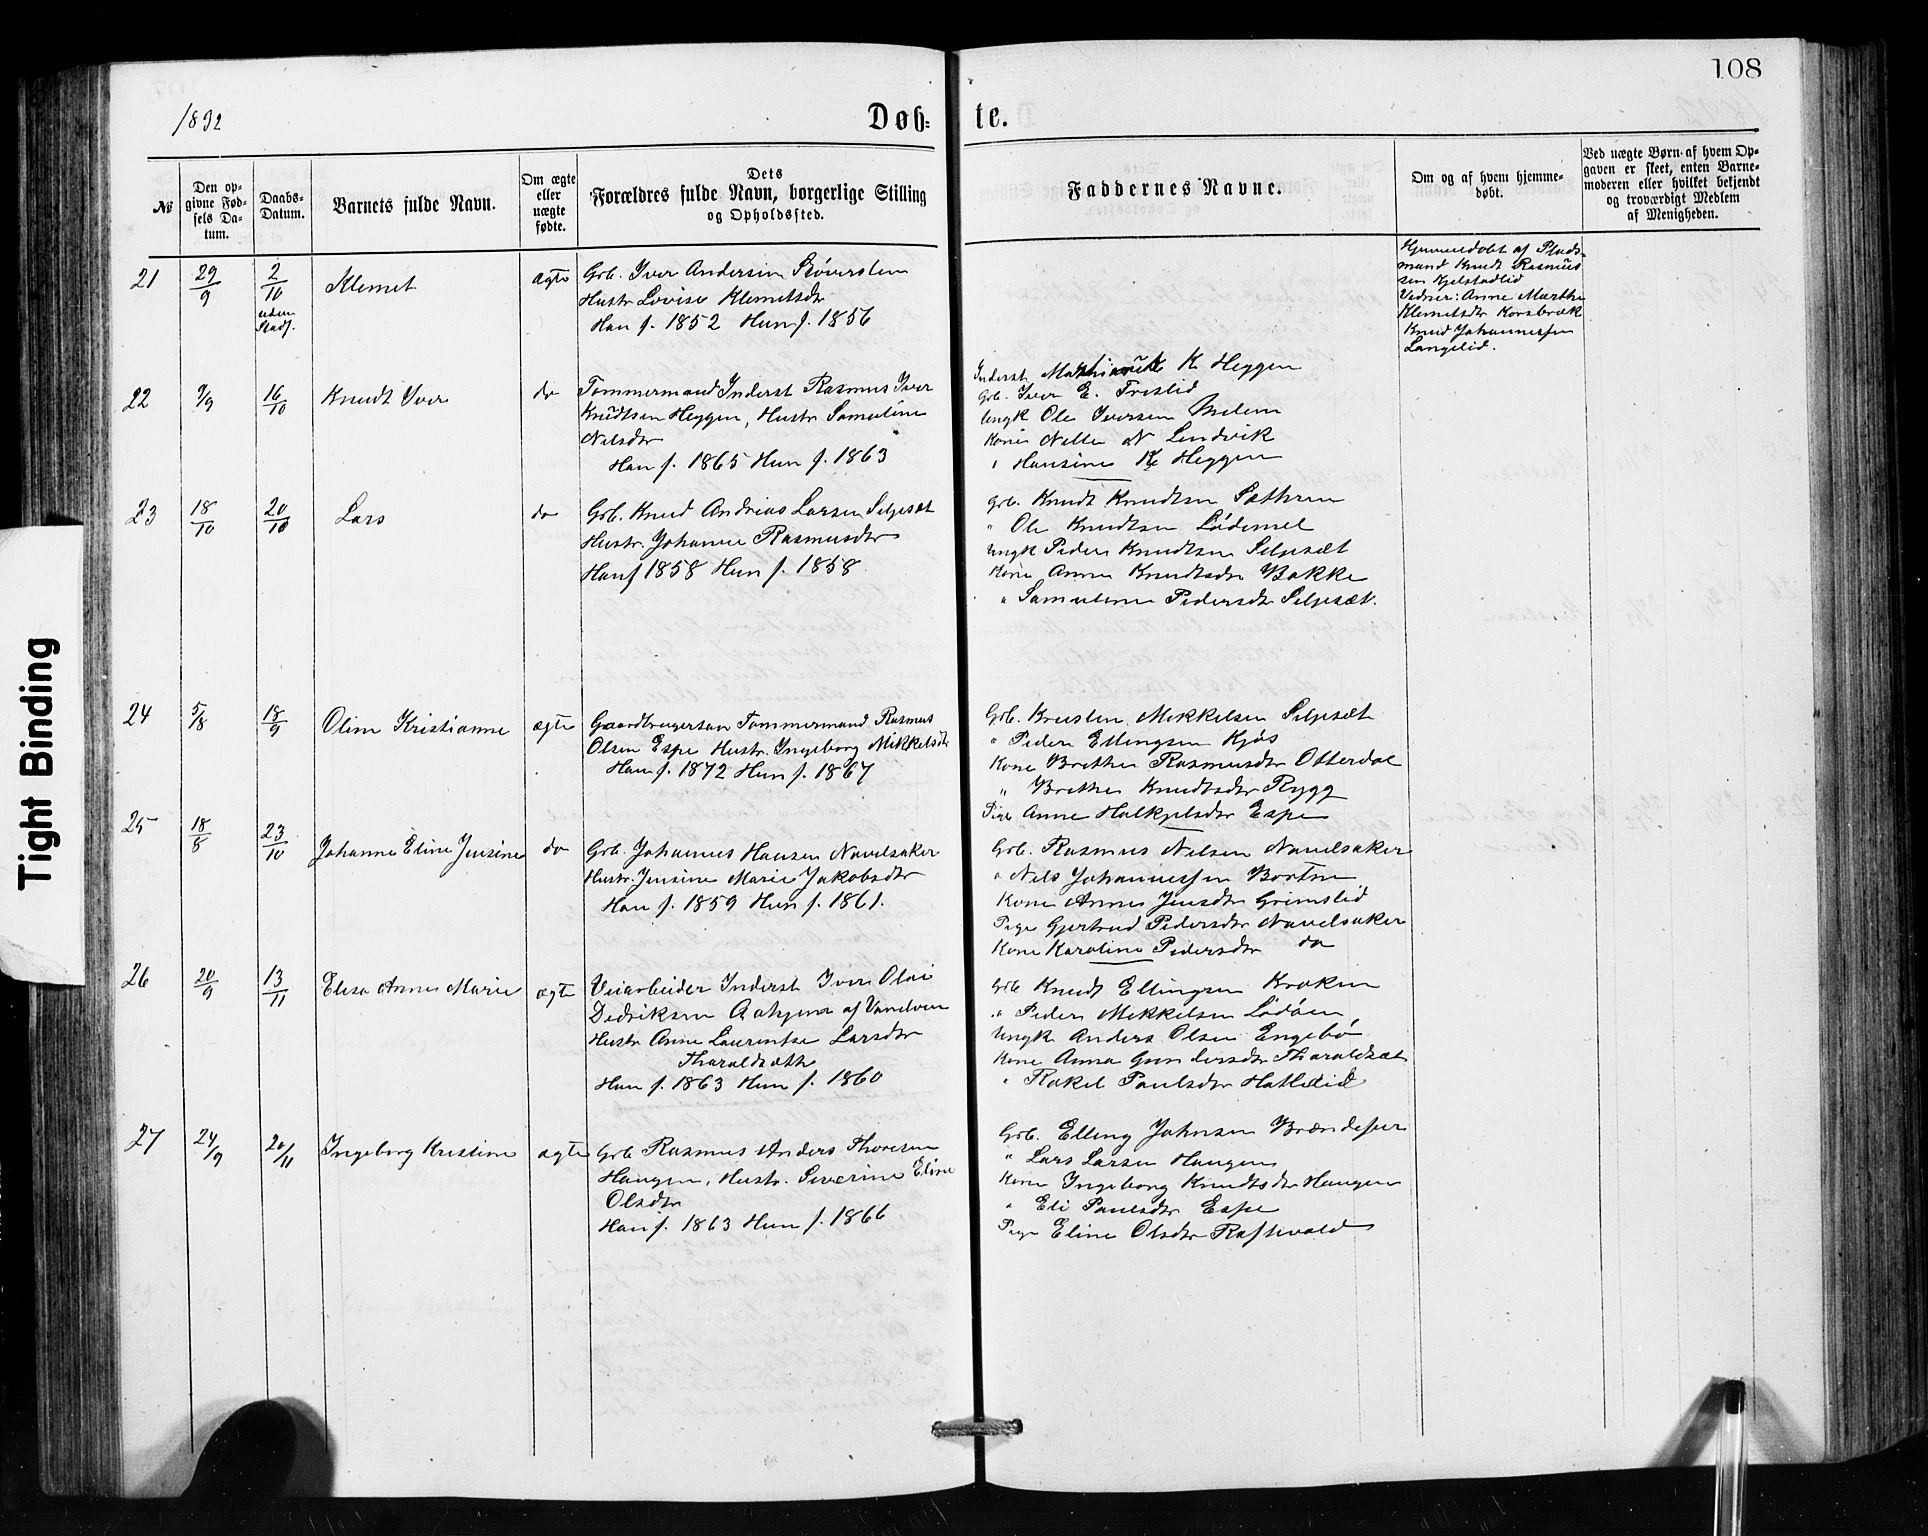 108
1892
Døb-te.
No
Den op-
givne Fød-
sels Da-
tum.
Daabs-
Datum.
Barnets fulde Navn.
Om ægte
eller
uægte
fødte.
Dets
Forældres fulde Navn, borgerlige Stilling
og Opholdssted.
Faddernes Navne.
Om og af hvem hjemme-
døbt.
Ved uægte Børn af hvem Op-
gaven er skeet, enten Barne-
moderen eller hvilket bekjendt
og troværdigt Medlem
af Menigheden.
21
29/9
2/10
uden
Stadf.
Klemet
ægte
Grb. Iver Andersen Støverslen
Hustr Lovise Klemetsdr
Han f. 1852 Hun f. 1856
Hjemmedøbt af Plads-
mand Knudt Rasmus
sen Kjelstadlid
Vidner: Anne Marthe
Klemetsdr Korsbræk
Knud Johannessen
Langelid.
22
9/9
16/10
Knudt Iver
do
Tømmermand Inderst Rasmus Iver
Knudtsen Heggen, Hustr Samuline
Nilsdr
Han f. 1865 Hun f. 1863
Inderst K Heggen
Grb. Iver E. Tristlid
Ungk Ole Iversen Melem
Kone Nille N Lendvik
" Hansine K Heggen
23
18/10
20/10
Lars
do
Grb. Knud Andreas Larsen Seljesæt
Hustr. Johanne Rasmusdr
Han f 1858 Hun f. 1858
Grb. Knudt Knudtsen Sæthren
" Ole Knudtsen Lødemel
Ungk Peder Knudtsen Seljesæt
Kone Anne Knudtsdr Bakke
" Samuline Pedersdr Seljesæt.
24
5/8
18/9
Oline Kristianne
ægte
Gaardbrugersøn Tømmermand Rasmus
Olsen Espe Hustr. Ingeborg Mikkelsdr
Han f. 1872 Hun f. 1867
Grb. Kristen Mikkelsen Seljesæt
" Peder Ellingsen Kjøs
Kone Brithe Rasmusdr Otterdal
" Brithe Knudtsdr Rygg
Pige Anne Halkjelsdr Espe
25
18/8
23/10
Johanne Eline Jensine
do
Grb. Johannes Hansen Navelsaker
Hustr. Jensine Marie Jakobsdr
Han f. 1859 Hun f. 1861.
Grb. Rasmus Nilsen Navelsaker
" Nils Johannessen Bortne
Kone Anne Jensdr Grimslid
Pige Gjertrud Pedersdr Navelsaker
Kone Karoline Pedersdr do
26
20/9
13/11
Elisa Anne Marie
ægte
Veiarbeider Inderst Iver Olai
Didriksen Aahjem af Vanelven
Hustr Anne Laurentse Larsdr
Tharaldsæth
Han f. 1863 Hun f. 1860
Grb Knudt Ellingsen Kroken
" Peder Mikkelsen Lødøen
Ungk Anders Olsen Engebø
Kone Anna Gundersdr Tharaldsæt
" Rakel Paulsdr Hatlelid
27
24/9
20/11
Ingeborg Kristine
ægte
Grb Rasmus Anders Thoresen
Haugen, Hustr. Severine Eline
Olsdr
Han f. 1863 Hun f. 1866
Grb. Elling Johnsen
" Lars Larsen Haugen
Kone Ingeborg Knudtsdr Haugen
" Eli Paulsdr Espe
Pige Eline Olsdr Raftevold
Tight Binding